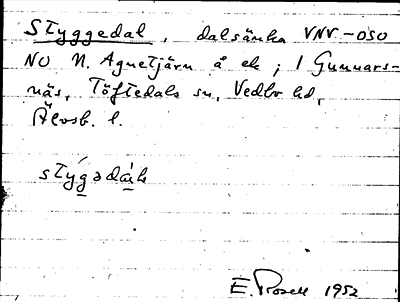 Styggedal, dalsänka VNV-OSO
NO N. Agnetjärn å ek; i Gunnars-
näs, Töftedals sn, Vedbo hd,
Älvsb. l.
E. Rosell 1952